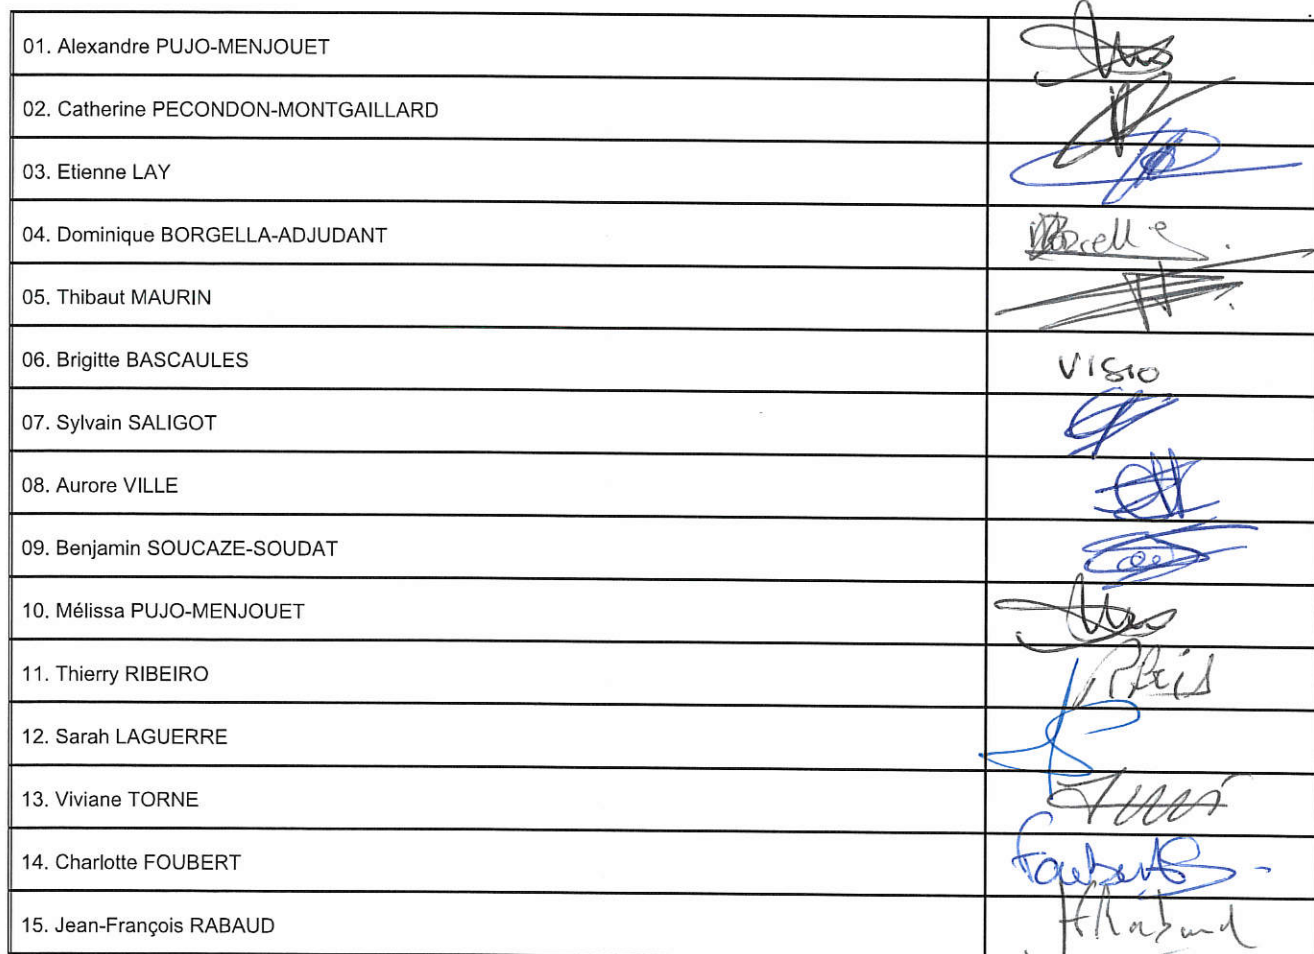 01. Alexandre PUJO-MENJOUET
02. Catherine PECONDON-MONTGAILLARD
03. Etienne LAY
04. Dominique BORGELLA-ADJUDANT
05. Thibaut MAURIN
06. Brigitte BASCAULES
VISIO
07. Sylvain SALIGOT
08. Aurore VILLE
09. Benjamin SOUCAZE-SOUDAT
10. Mélissa PUJO-MENJOUET
11. Thierry RIBEIRO
12. Sarah LAGUERRE
13. Viviane TORNE
14. Charlotte FOUBERT
Foubert
15. Jean-François RABAUD
JFRabaud